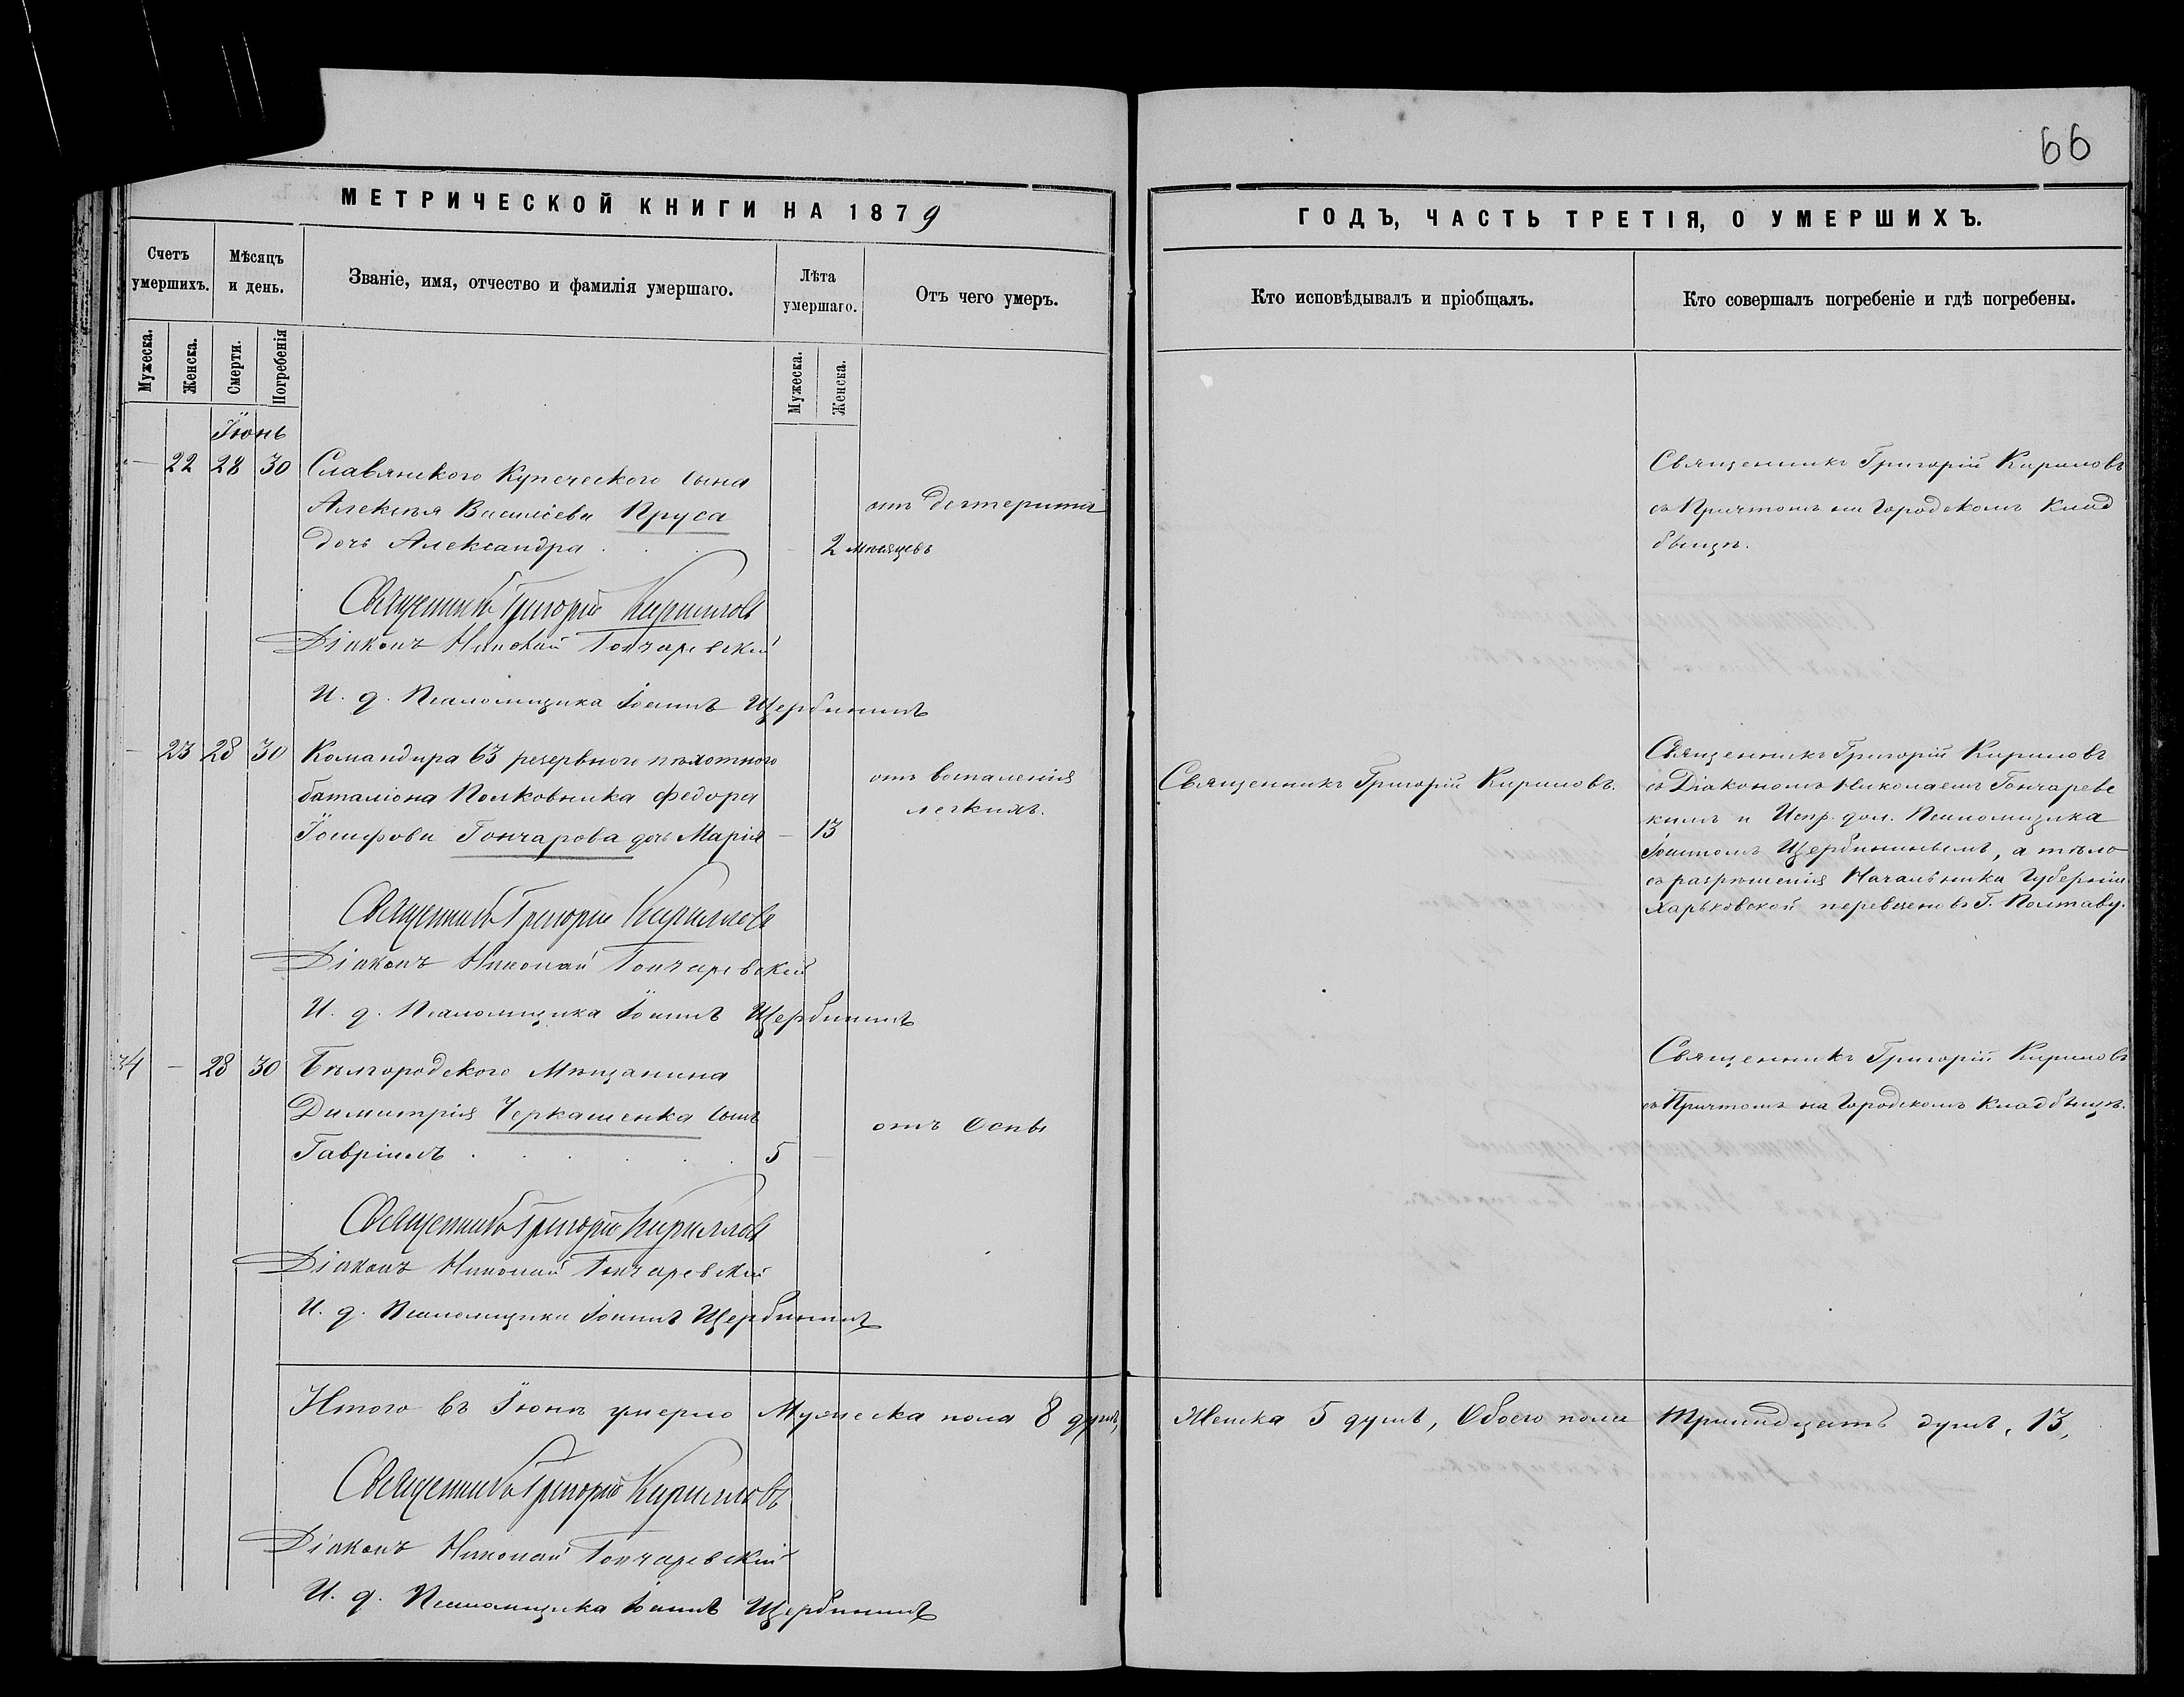 66
МЕТРИЧЕСКОЙ КНИГИ НА 1879
ГОДЪ, ЧАСТЬ ТРЕТІЯ, О УМЕРШИХЪ.
Счетъ умершихъ.
Мѣсяцъ и день.
Званіе, имя, отчество и фамилія умершаго.
Лѣта умершаго.
Отъ чего умеръ.
Кто исповѣдывалъ и пріобщалъ.
Кто совершалъ погребеніе и гдѣ погребены.
Мужеска.
Женска.
Смерти.
Погребенія
Мужеска.
Женска.
Іюнь
— 22 28 30 Славянскаго Купеческаго сына
Алексѣя Васильева Пруса
дочь Александра . . . — 2 мѣсяцевъ
отъ Дегтерита
Священникъ Григорій Кириловъ
съ Причтомъ на Городскомъ Клад
бищѣ.
Священникъ Григорій Кирилловъ
Діаконъ Николай Гончаревскій
И. д. Псаломщика Іоаннъ Щербининъ
— 23 28 30 Командира 63 резервного пѣхотного
баталіона Полковника Федора
Іосифова Гончарова дочь Марія — 13
отъ воспаленія
легкихъ.
Священникъ Григорій Кириловъ.
Священникъ Григорій Кириловъ
съ Діакономъ Николаемъ Гончаревс
кимъ и Испр. дол. Псаломщика
Іоанномъ Щербининымъ, а тѣло
съ разрѣшенія Начальника Губерніи
Харьковской перевезено въ Г. Полтаву.
Священникъ Григорій Кирилловъ
Діаконъ Николай Гончаревскій
И. д. Псаломщика Іоаннъ Щербининъ
34 — 28 30 Бѣлгородского Мѣщанина
Димитрія Черкашенка сынъ
Гавріилъ . . . . . . 5 —
отъ Оспы
Священникъ Григорій Кириловъ
съ Причтомъ на Городскомъ Кладбищѣ.
Священникъ Григорій Кирилловъ
Діаконъ Николай Гончаревскій
И. д. Псаломщика Іоаннъ Щербининъ
Итого въ Іюнѣ умерло Мужеска пола 8 душъ, Женска 5 душъ, Обоего пола тринадцать душъ. 13,
Священникъ Григорій Кирилловъ
Діаконъ Николай Гончаревскій
И. д. Псаломщика Іоаннъ Щербининъ